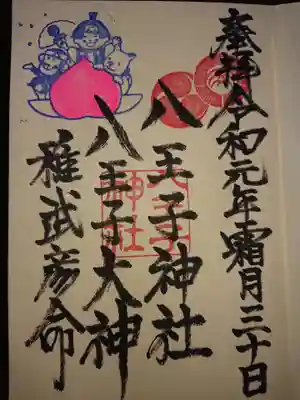 奉拝令和元年霜月三十日
八王子神社
八王子大神
稚武彦命
八王子
神社